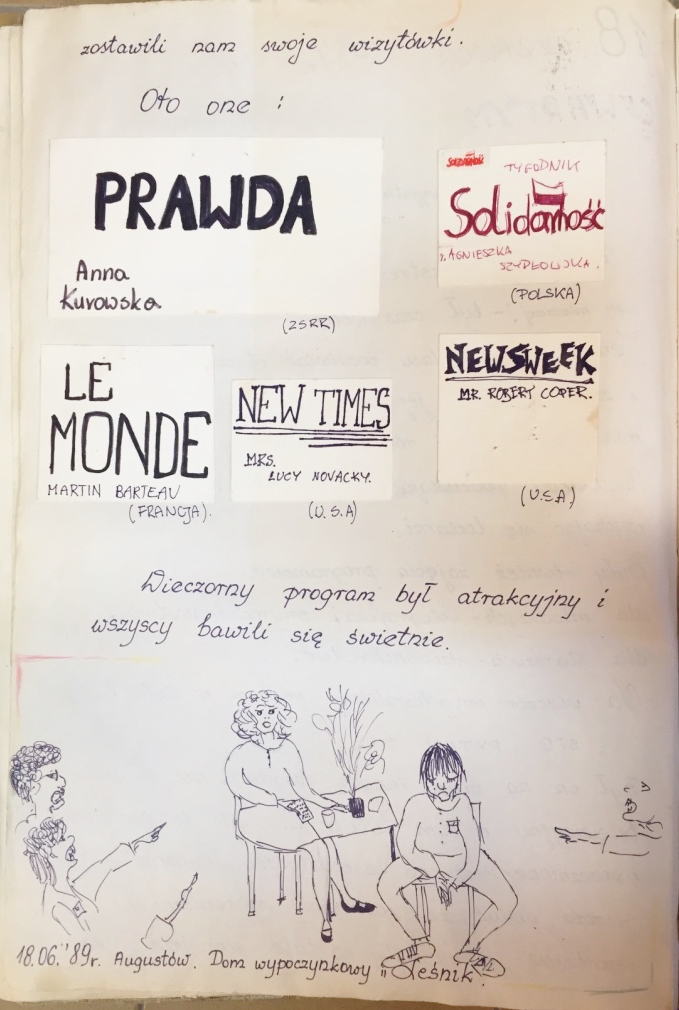 zostawili nam swoje wizytówki.
Oto one :
PRAWDA
Anna
Kurowska
(ZSRR)
SOLIDARNOŚĆ
TYGODNIK
Solidarność
AGNIESZKA
SZYDŁOWSKA.
(POLSKA)
LE
MONDE
MARTIN BARTEAU
(FRANCJA).
NEW TIMES
MRS.
LUCY NOVACKY.
(U.S.A)
NEWSWEEK
MR. ROBERT COPER.
(U.S.A)
Wieczorny program był atrakcyjny i
wszyscy bawili się świetnie.
18.06.'89r. Augustów. Dom wypoczynkowy "Leśnik".